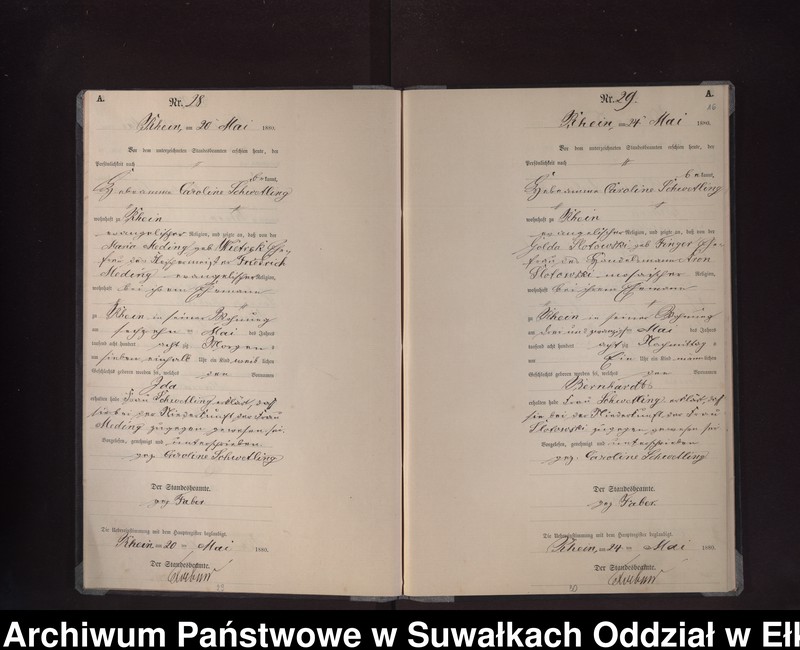 A.
Nr. 28
Rhein, am 20 ten Mai 1880.
Vor dem unterzeichneten Standesbeamten erschien heute, der
Persönlichkeit nach
kannt,
Hebeamme Caroline Schwetling
wohnhaft zu Rhein
evangelischer Religion, und zeigte an, daß von der
Maria Meding geb. Ehe
frau des
Meding evangelischer Religion,
wohnhaft bei ihrem Ehemann
zu Rhein in seiner Wohnung
am sechszehn ten Mai des Jahres
tausend acht hundert acht zig Morgens
um sieben einhalb Uhr ein Kind weib lichen
Geschlechts geboren worden sei, welches den Vornamen
Ida
erhalten habe. Frau Schwetling erklärt, daß
sie bei der Niederkunft der Frau
Meding zugegen gewesen sei
Vorgelesen, genehmigt und unterschrieben
gez. Caroline Schwetling
Der Standesbeamte.
gez. Faber
Die Uebereinstimmung mit dem Hauptregister beglaubigt.
Rhein, am 20 ten Mai 1880.
Der Standesbeamte.
A.
Nr. 29.
Rhein, am 24 ten Mai 1880.
Vor dem unterzeichneten Standesbeamten erschien heute, der
Persönlichkeit nach
kannt,
Hebeamme Caroline Schwetling
wohnhaft zu Rhein
evangelischer Religion, und zeigte an, daß von der
Golda Slotowski geb. Ehe
frau des Handelsmann
Slotowski mosaischer Religion,
wohnhaft bei ihrem Ehemann
zu Rhein in seiner Wohnung
am drei und zwanzigsten Mai des Jahres
tausend acht hundert acht zig Nachmittag s
um Ein Uhr ein Kind männlichen
Geschlechts geboren worden sei, welches den Vornamen
Bernhardt
erhalten habe. Frau Schwetling erklärt, daß
sie bei der Niederkunft der Frau
Slotowski zugegen gewesen sei
Vorgelesen, genehmigt und unterschrieben
gez. Caroline Schwetling
Der Standesbeamte.
gez. Faber.
Die Uebereinstimmung mit dem Hauptregister beglaubigt.
Rhein, am 24 ten Mai 1880.
Der Standesbeamte.
Archiwum Państwowe w Suwałkach Oddział w Ełk